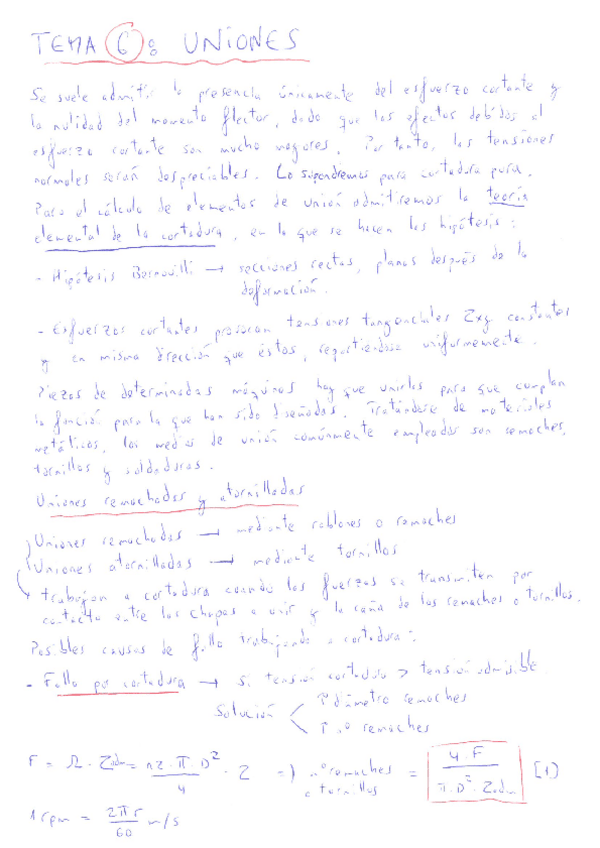 TEMA 6: UNIONES
Se suele admitir la presencia únicamente del esfuerzo cortante y
la nulidad del momento flector, dado que los efectos debidos al
esfuerzo cortante son mucho mayores. Por tanto, las tensiones
normales serán despreciables. Lo supondremos para cortadura pura.
Para el cálculo de elementos de unión admitiremos la teoría
elemental de la cortadura, en la que se hacen las hipótesis:
- Hipótesis Bernouilli → secciones rectas, planas después de la
deformación.
- Esfuerzos cortantes provocan tensiones tangenciales Zxy constantes
y en misma dirección que éstos, repartiéndose uniformemente.
Piezas de determinadas máquinas hay que unirlas para que cumplan
la función para la que han sido diseñadas. Tratándose de materiales
metálicos, los medios de unión comúnmente empleados son remaches,
tornillos y soldaduras.
Uniones remachadas y atornilladas
Uniones remachadas → mediante roblones o remaches
Uniones atornilladas → mediante tornillos
→ trabajan a cortadura cuando las fuerzas se transmiten por
contacto entre las chapas a unir y la caña de los remaches o tornillos.
Posibles causas de fallo trabajando a cortadura:
- Fallo por cortadura → si tensión cortadura > tensión admisible.
Solución < ↑ diámetro remaches
↑ nº remaches
F = Ω · Zadm = nz · π · D² / 4 · Z => nº remaches o tornillos = 4 · F / π · D² · Zadm [1]
1 rpm = 2πr / 60 m/s